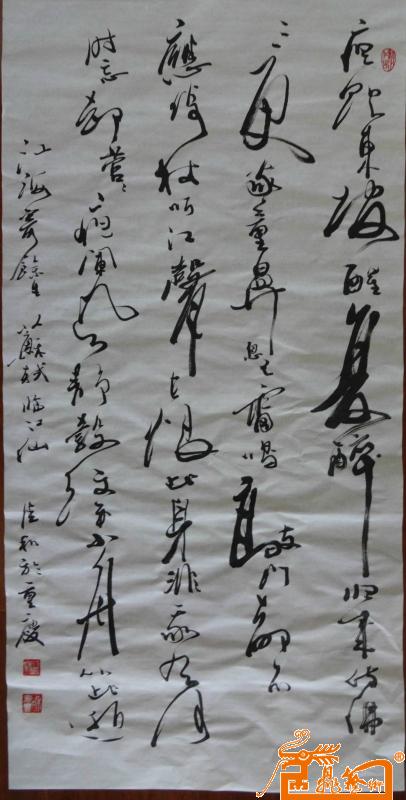 夜饮东坡醒复醉归来仿佛
三更家童鼻息已雷鸣敲门都不
应倚杖听江声长恨此身非我有何
时忘却营营夜阑风静縠纹平小舟从此逝
江海寄余生 苏轼临江仙 於重庆